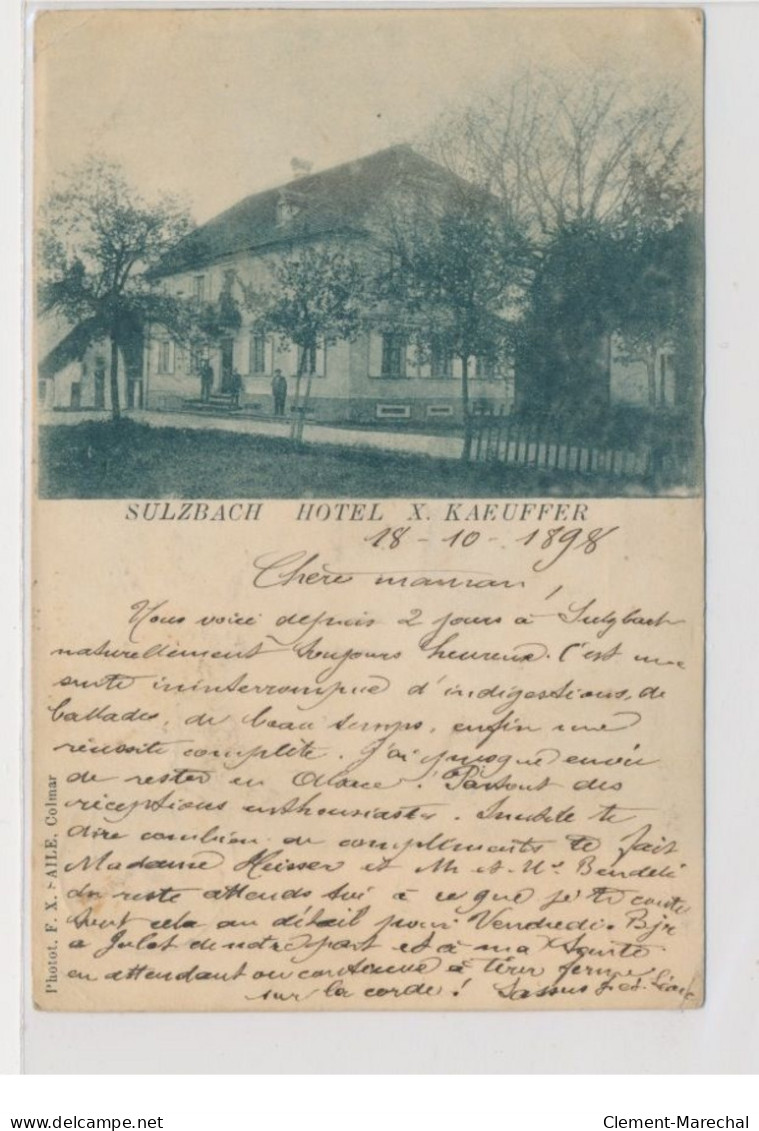 SULZBACH HOTEL X. KAEUFFER
18 - 10 - 1898
Chère maman!
Nous voici depuis 2 jours à Sulzbach
naturellement toujours heureux. C'est une
suite ininterrompue d'indigestions, de
ballades, de beau temps, enfin une
réussite complète. J'ai presque envie
de rester en Alsace. Partout des
réceptions enthousiastes. Inutile te
dire combien de compliments te fait
Madame Heisser et M et
du reste attends toi à ce que je te conte
tout cela au détail pour Vendredi. Bjr
à Julot de notre part et à ma
en attendant on continue à tirer ferme
sur la corde!
Photot. F. X. SAILE, Colmar
Clement-Marechal